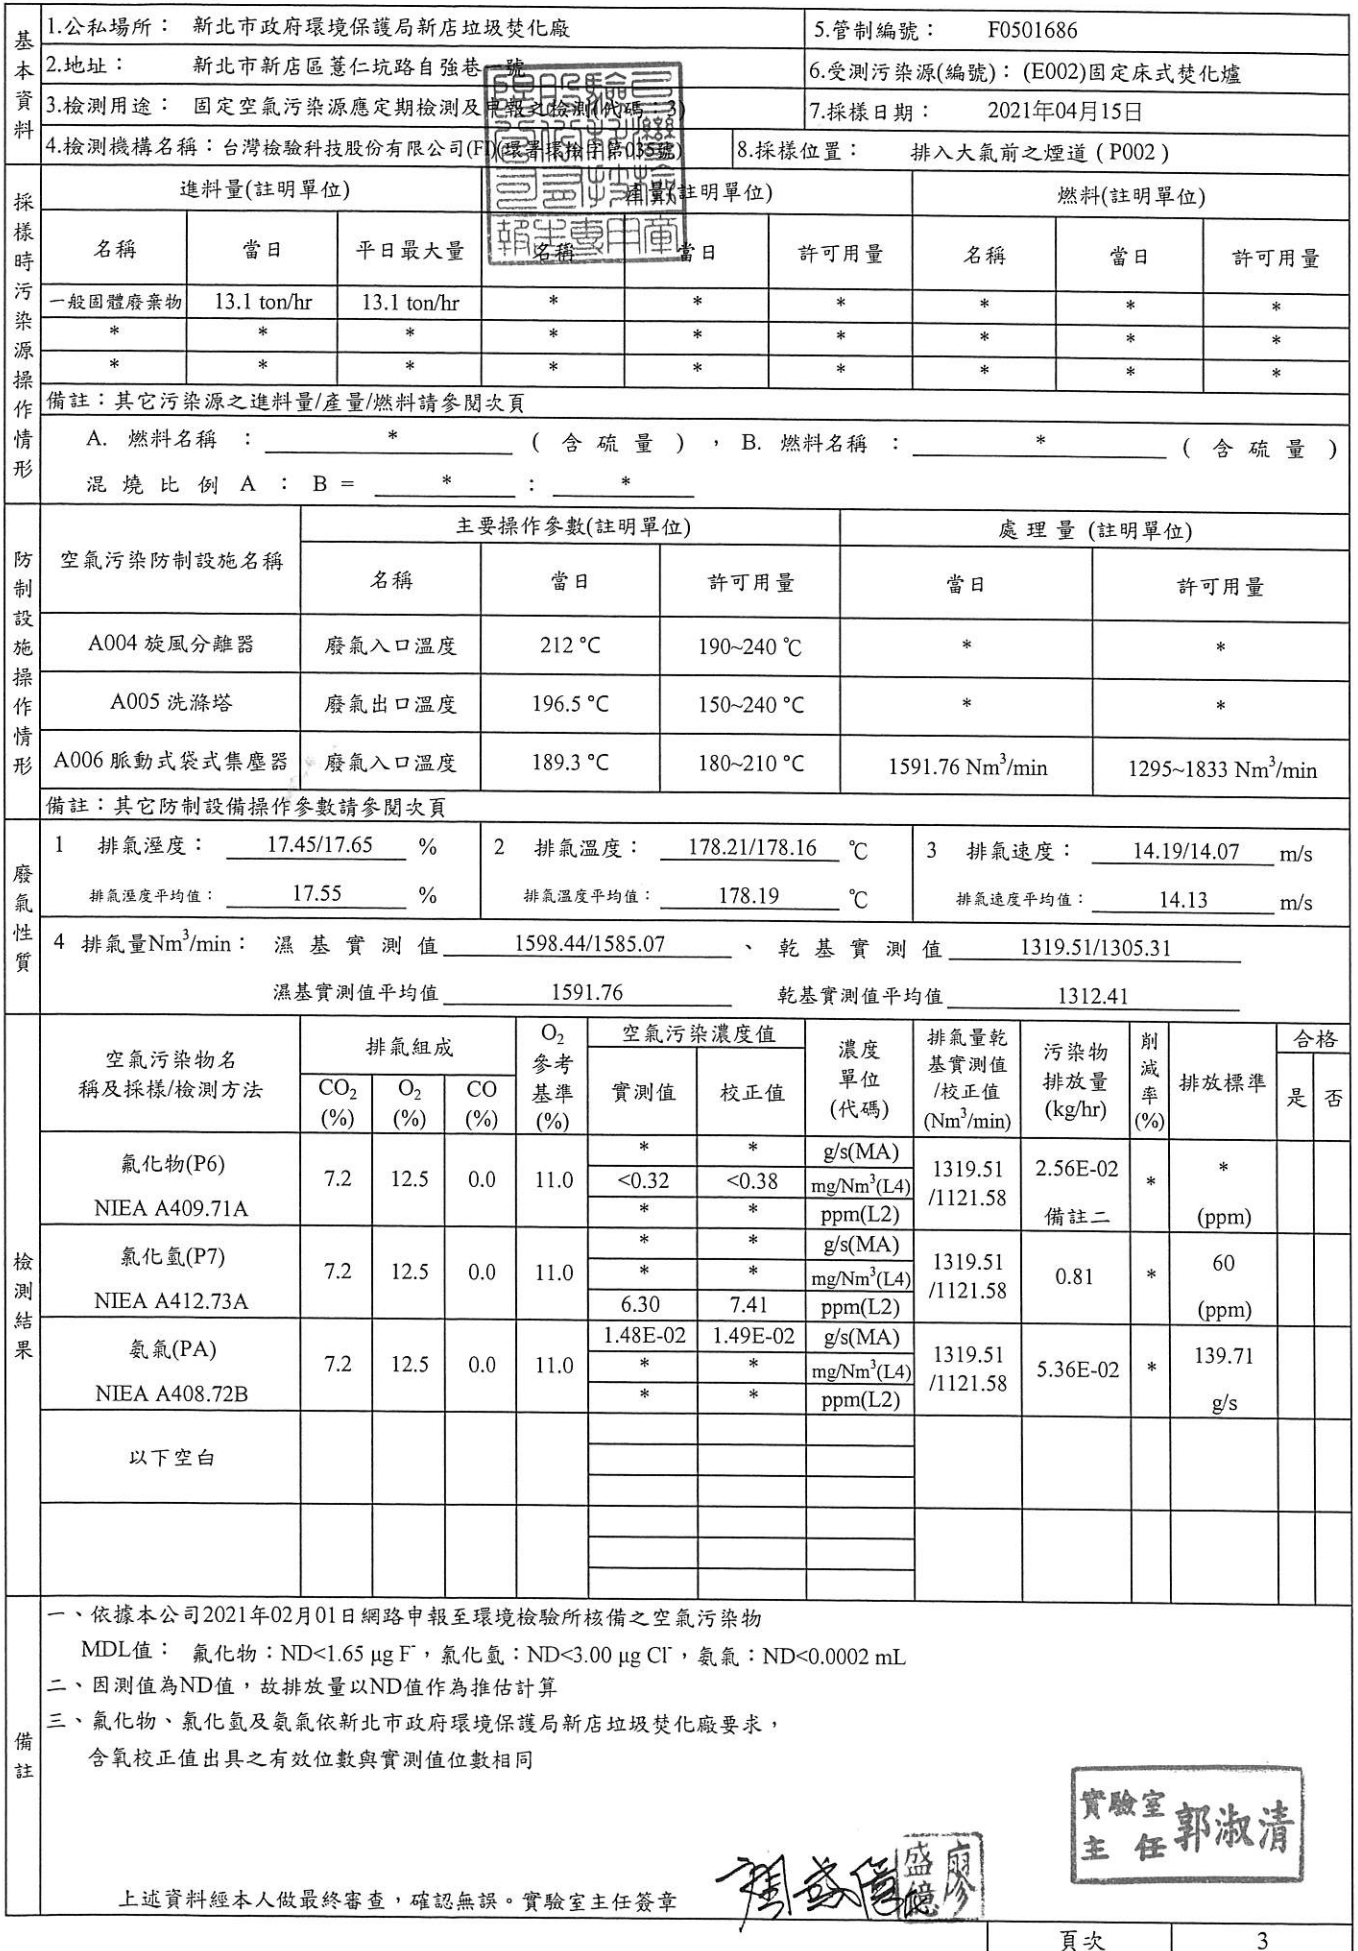 基本資料
1.公私場所： 新北市政府環境保護局新店垃圾焚化廠
5.管制編號： F0501686
2.地址： 新北市新店區薏仁坑路自強巷一號
6.受測污染源(編號)：(E002)固定床式焚化爐
3.檢測用途： 固定空氣污染源應定期檢測及申報之檢測(代碼：3)
7.採樣日期： 2021年04月15日
4.檢測機構名稱：台灣檢驗科技股份有限公司(FI)(環署環檢字第035號)
8.採樣位置： 排入大氣前之煙道（P002）
採樣時污染源操作情形
進料量(註明單位) 產量(註明單位) 燃料(註明單位)
名稱 當日 平日最大量 名稱 當日 許可用量 名稱 當日 許可用量
一般固體廢棄物 13.1 ton/hr 13.1 ton/hr * * * * * *
* * * * * * * * *
* * * * * * * * *
備註：其它污染源之進料量/產量/燃料請參閱次頁
A. 燃料名稱 ： * （ 含 硫 量 ），B. 燃料名稱 ： * （ 含 硫 量 ）
混 燒 比 例 A ： B = * ： *
防制設施操作情形
空氣污染防制設施名稱 主要操作參數(註明單位) 處理量 (註明單位)
名稱 當日 許可用量 當日 許可用量
A004 旋風分離器 廢氣入口溫度 212 ℃ 190~240 ℃ * *
A005 洗滌塔 廢氣出口溫度 196.5 ℃ 150~240 ℃ * *
A006 脈動式袋式集塵器 廢氣入口溫度 189.3 ℃ 180~210 ℃ 1591.76 Nm³/min 1295~1833 Nm³/min
備註：其它防制設備操作參數請參閱次頁
廢氣性質
1 排氣溼度： 17.45/17.65 % 2 排氣溫度： 178.21/178.16 ℃ 3 排氣速度： 14.19/14.07 m/s
排氣溼度平均值： 17.55 % 排氣溫度平均值： 178.19 ℃ 排氣速度平均值： 14.13 m/s
4 排氣量Nm³/min： 濕 基 實 測 值 1598.44/1585.07 、 乾 基 實 測 值 1319.51/1305.31
濕基實測值平均值 1591.76 乾基實測值平均值 1312.41
檢測結果
空氣污染物名稱及採樣/檢測方法 排氣組成 O₂參考基準(%) 空氣污染濃度值 濃度單位(代碼) 排氣量乾基實測值/校正值(Nm³/min) 污染物排放量(kg/hr) 削減率(%) 排放標準 合格
CO₂(%) O₂(%) CO(%) 實測值 校正值 是 否
氟化物(P6) NIEA A409.71A 7.2 12.5 0.0 11.0 * * g/s(MA) 1319.51/1121.58 2.56E-02 備註二 * * (ppm)
<0.32 <0.38 mg/Nm³(L4)
* * ppm(L2)
氯化氫(P7) NIEA A412.73A 7.2 12.5 0.0 11.0 * * g/s(MA) 1319.51/1121.58 0.81 * 60 (ppm)
* * mg/Nm³(L4)
6.30 7.41 ppm(L2)
氨氣(PA) NIEA A408.72B 7.2 12.5 0.0 11.0 1.48E-02 1.49E-02 g/s(MA) 1319.51/1121.58 5.36E-02 * 139.71 g/s
* * mg/Nm³(L4)
* * ppm(L2)
以下空白
備註
一、依據本公司2021年02月01日網路申報至環境檢驗所核備之空氣污染物
MDL值： 氟化物：ND<1.65 μg F⁻，氯化氫：ND<3.00 μg Cl⁻，氨氣：ND<0.0002 mL
二、因測值為ND值，故排放量以ND值作為推估計算
三、氟化物、氯化氫及氨氣依新北市政府環境保護局新店垃圾焚化廠要求，
含氧校正值出具之有效位數與實測值位數相同
實驗室主任 郭淑清
廖盛億
上述資料經本人做最終審查，確認無誤。實驗室主任簽章
頁次 3